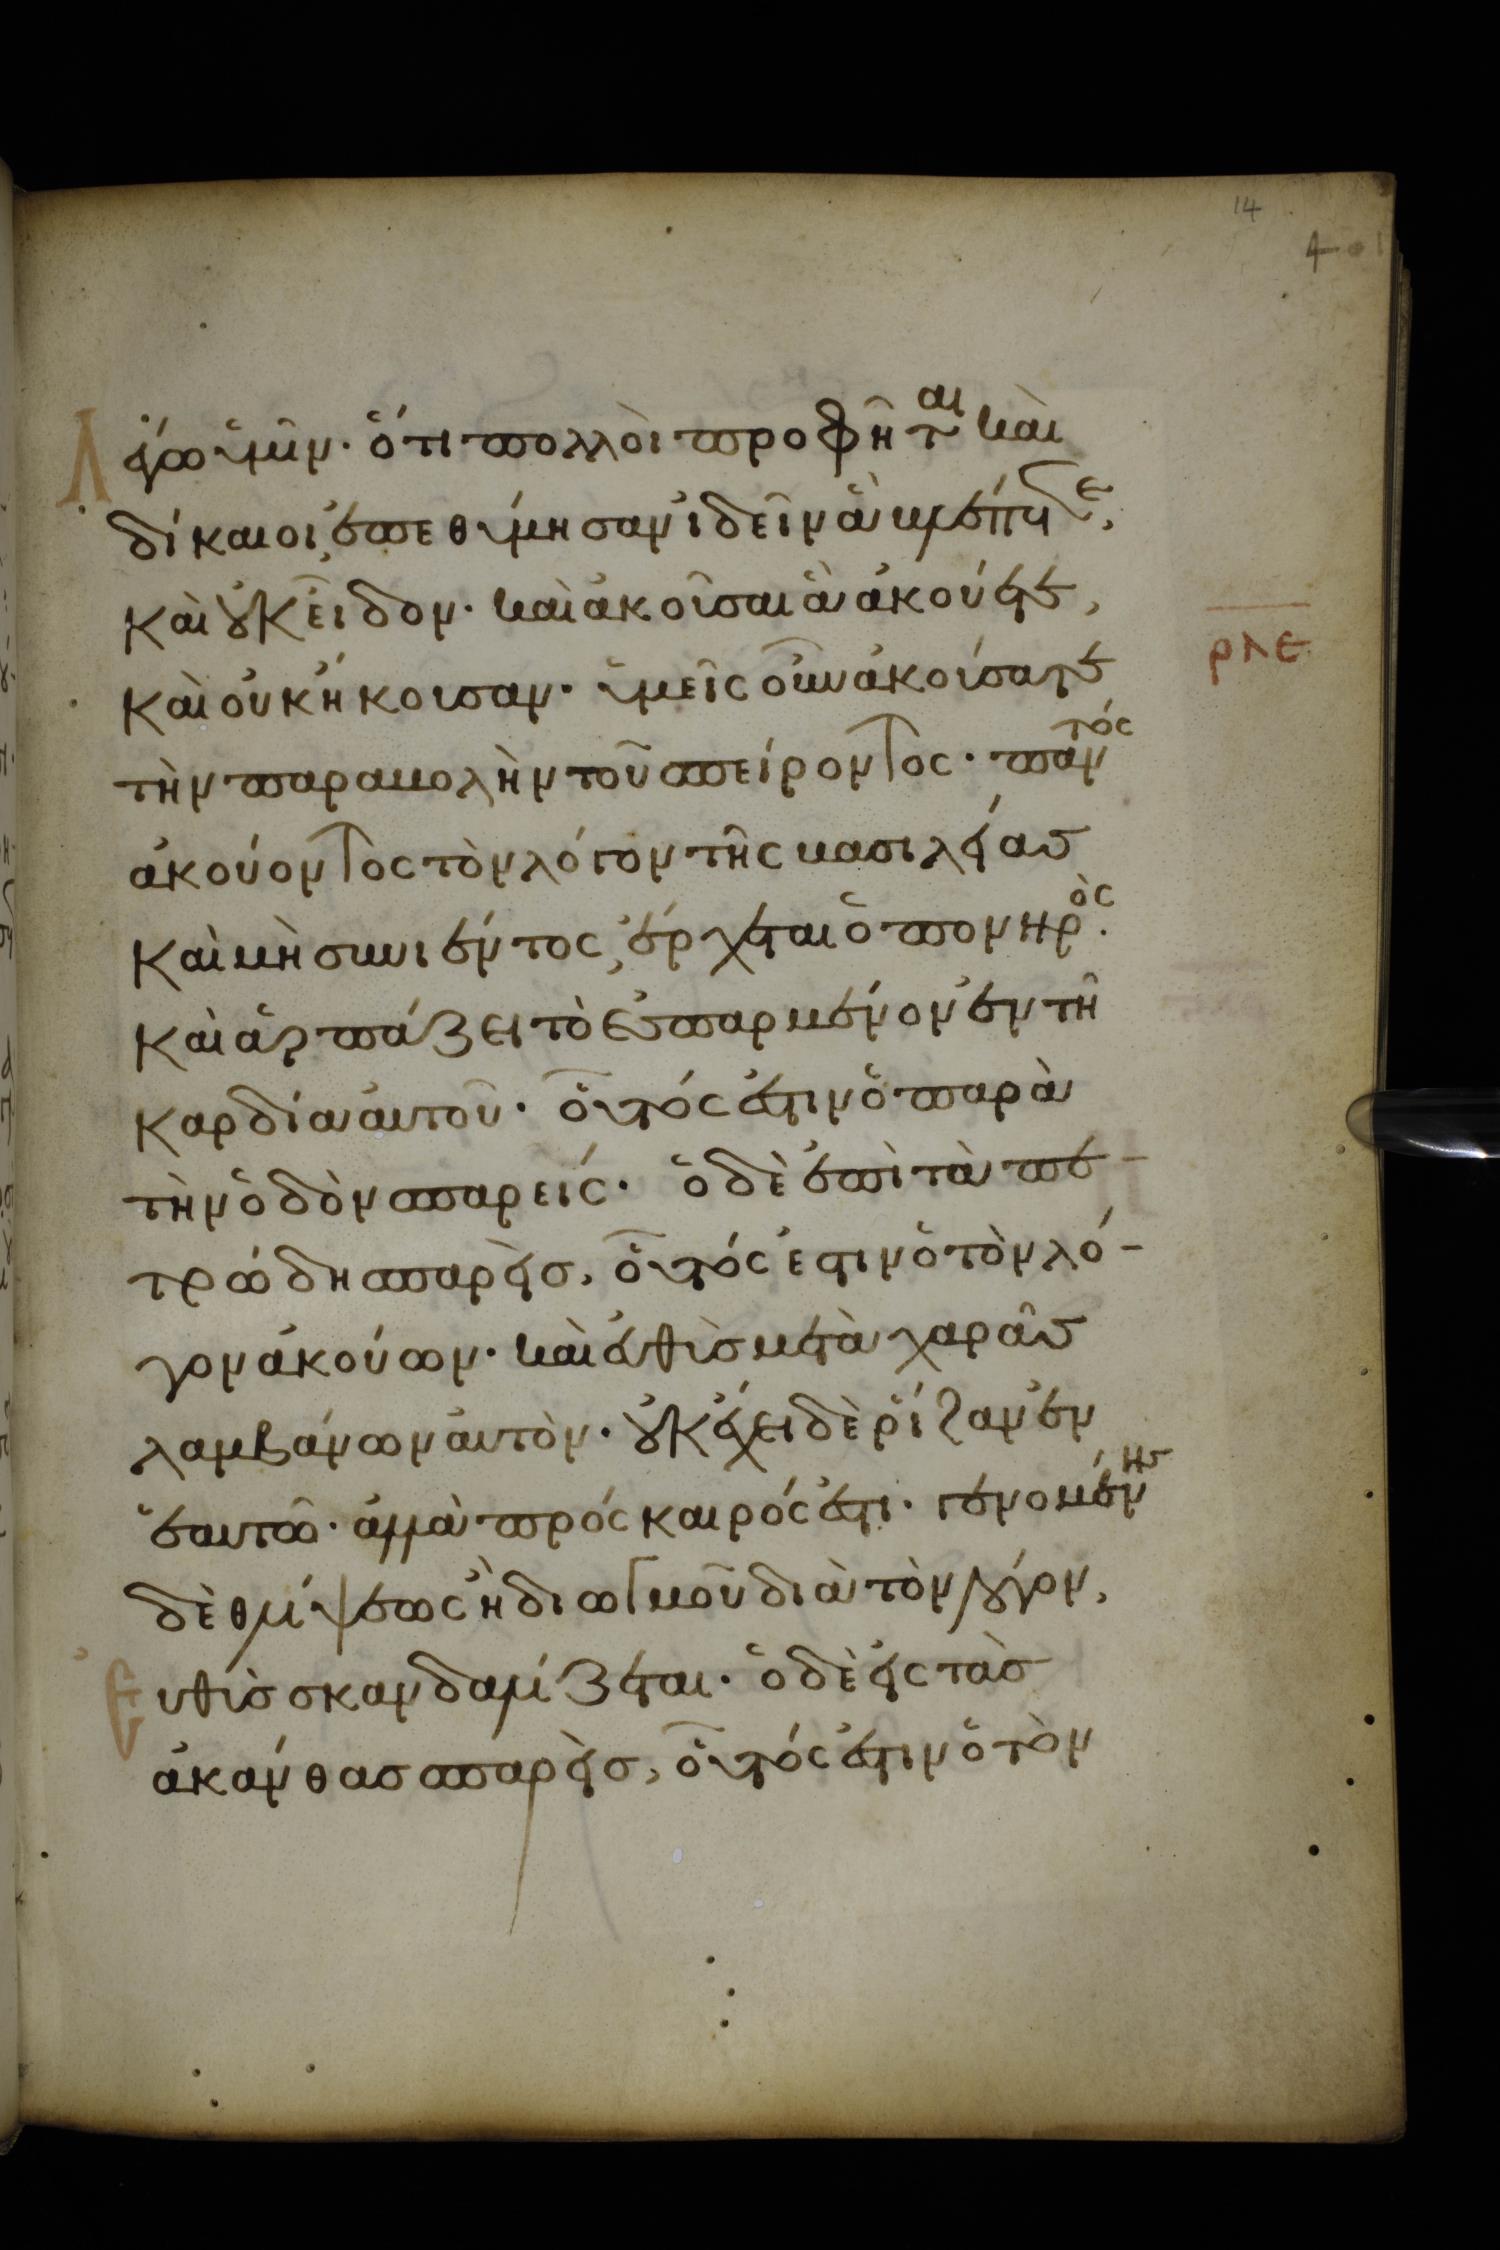 14
401
Λέγω ὑμῖν· ὅτι πολλοὶ προφῆται καὶ
δίκαιοι, ἐπεθύμησαν ἰδεῖν ἃ βλέπετε,
καὶ οὐκ εἶδον· καὶ ἀκοῦσαι ἃ ἀκούετε,
ρλε
καὶ οὐκ ἤκουσαν· ὑμεῖς οὖν ἀκούσατε
τὴν παραβολὴν τοῦ σπείροντος· παντός
ἀκούοντος τὸν λόγον τῆς βασιλείας
καὶ μὴ συνιέντος, ἔρχεται ὁ πονηρὸς.
καὶ ἁρπάζει τὸ ἐσπαρμένον ἐν τῆ
καρδία αὐτοῦ· οὗτός ἐστιν ὁ παρὰ
τὴν ὁδὸν σπαρείς· ὁ δὲ ἐπὶ τὰ πε-
τρώδη σπαρεὶς, οὗτός ἐστιν ὁ τὸν λό-
γον ἀκούων· καὶ εὐθὺς μετὰ χαρᾶς
λαμβάνων αὐτὸν· οὐκ ἔχει δὲ ῥίζαν ἐν
ἑαυτῶ· ἀλλὰ πρόσκαιρός ἐστι· γενομένης
δὲ θλίψεως ἢ διωγμοῦ διὰ τὸν λόγον,
Εὐθὺς σκανδαλίζεται· ὁ δὲ εἰς τὰς
ἀκάνθας σπαρεὶς, οὗτός ἐστιν ὁ τὸν